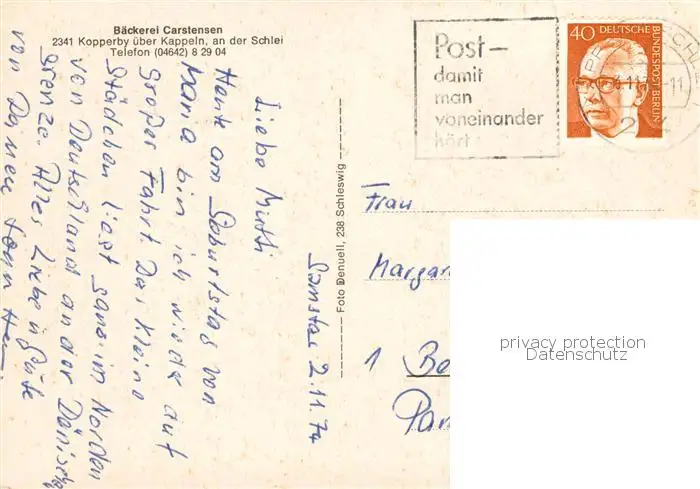 Bäckerei Carstensen
2341 Kopperby über Kappeln, an der Schlei
Telefon (04642) 8 29 04
Post-
damit
man
voneinander
hört
40 DEUTSCHE
BUNDESPOST BERLIN
Samstag 2.11.74
Liebe Mutti
Heute am Geburtstag von
Maria bin ich wieder auf
Großer Fahrt Das kleine
Städchen liegt ganz im Norden
von Deutschland an der Dänischen
Grenze. Alles Liebe u Gute
von Deinem Sohn
Foto Denuell, 238 Schleswig
Frau
Margar
1 Be
Pan
privacy protection
Datenschutz